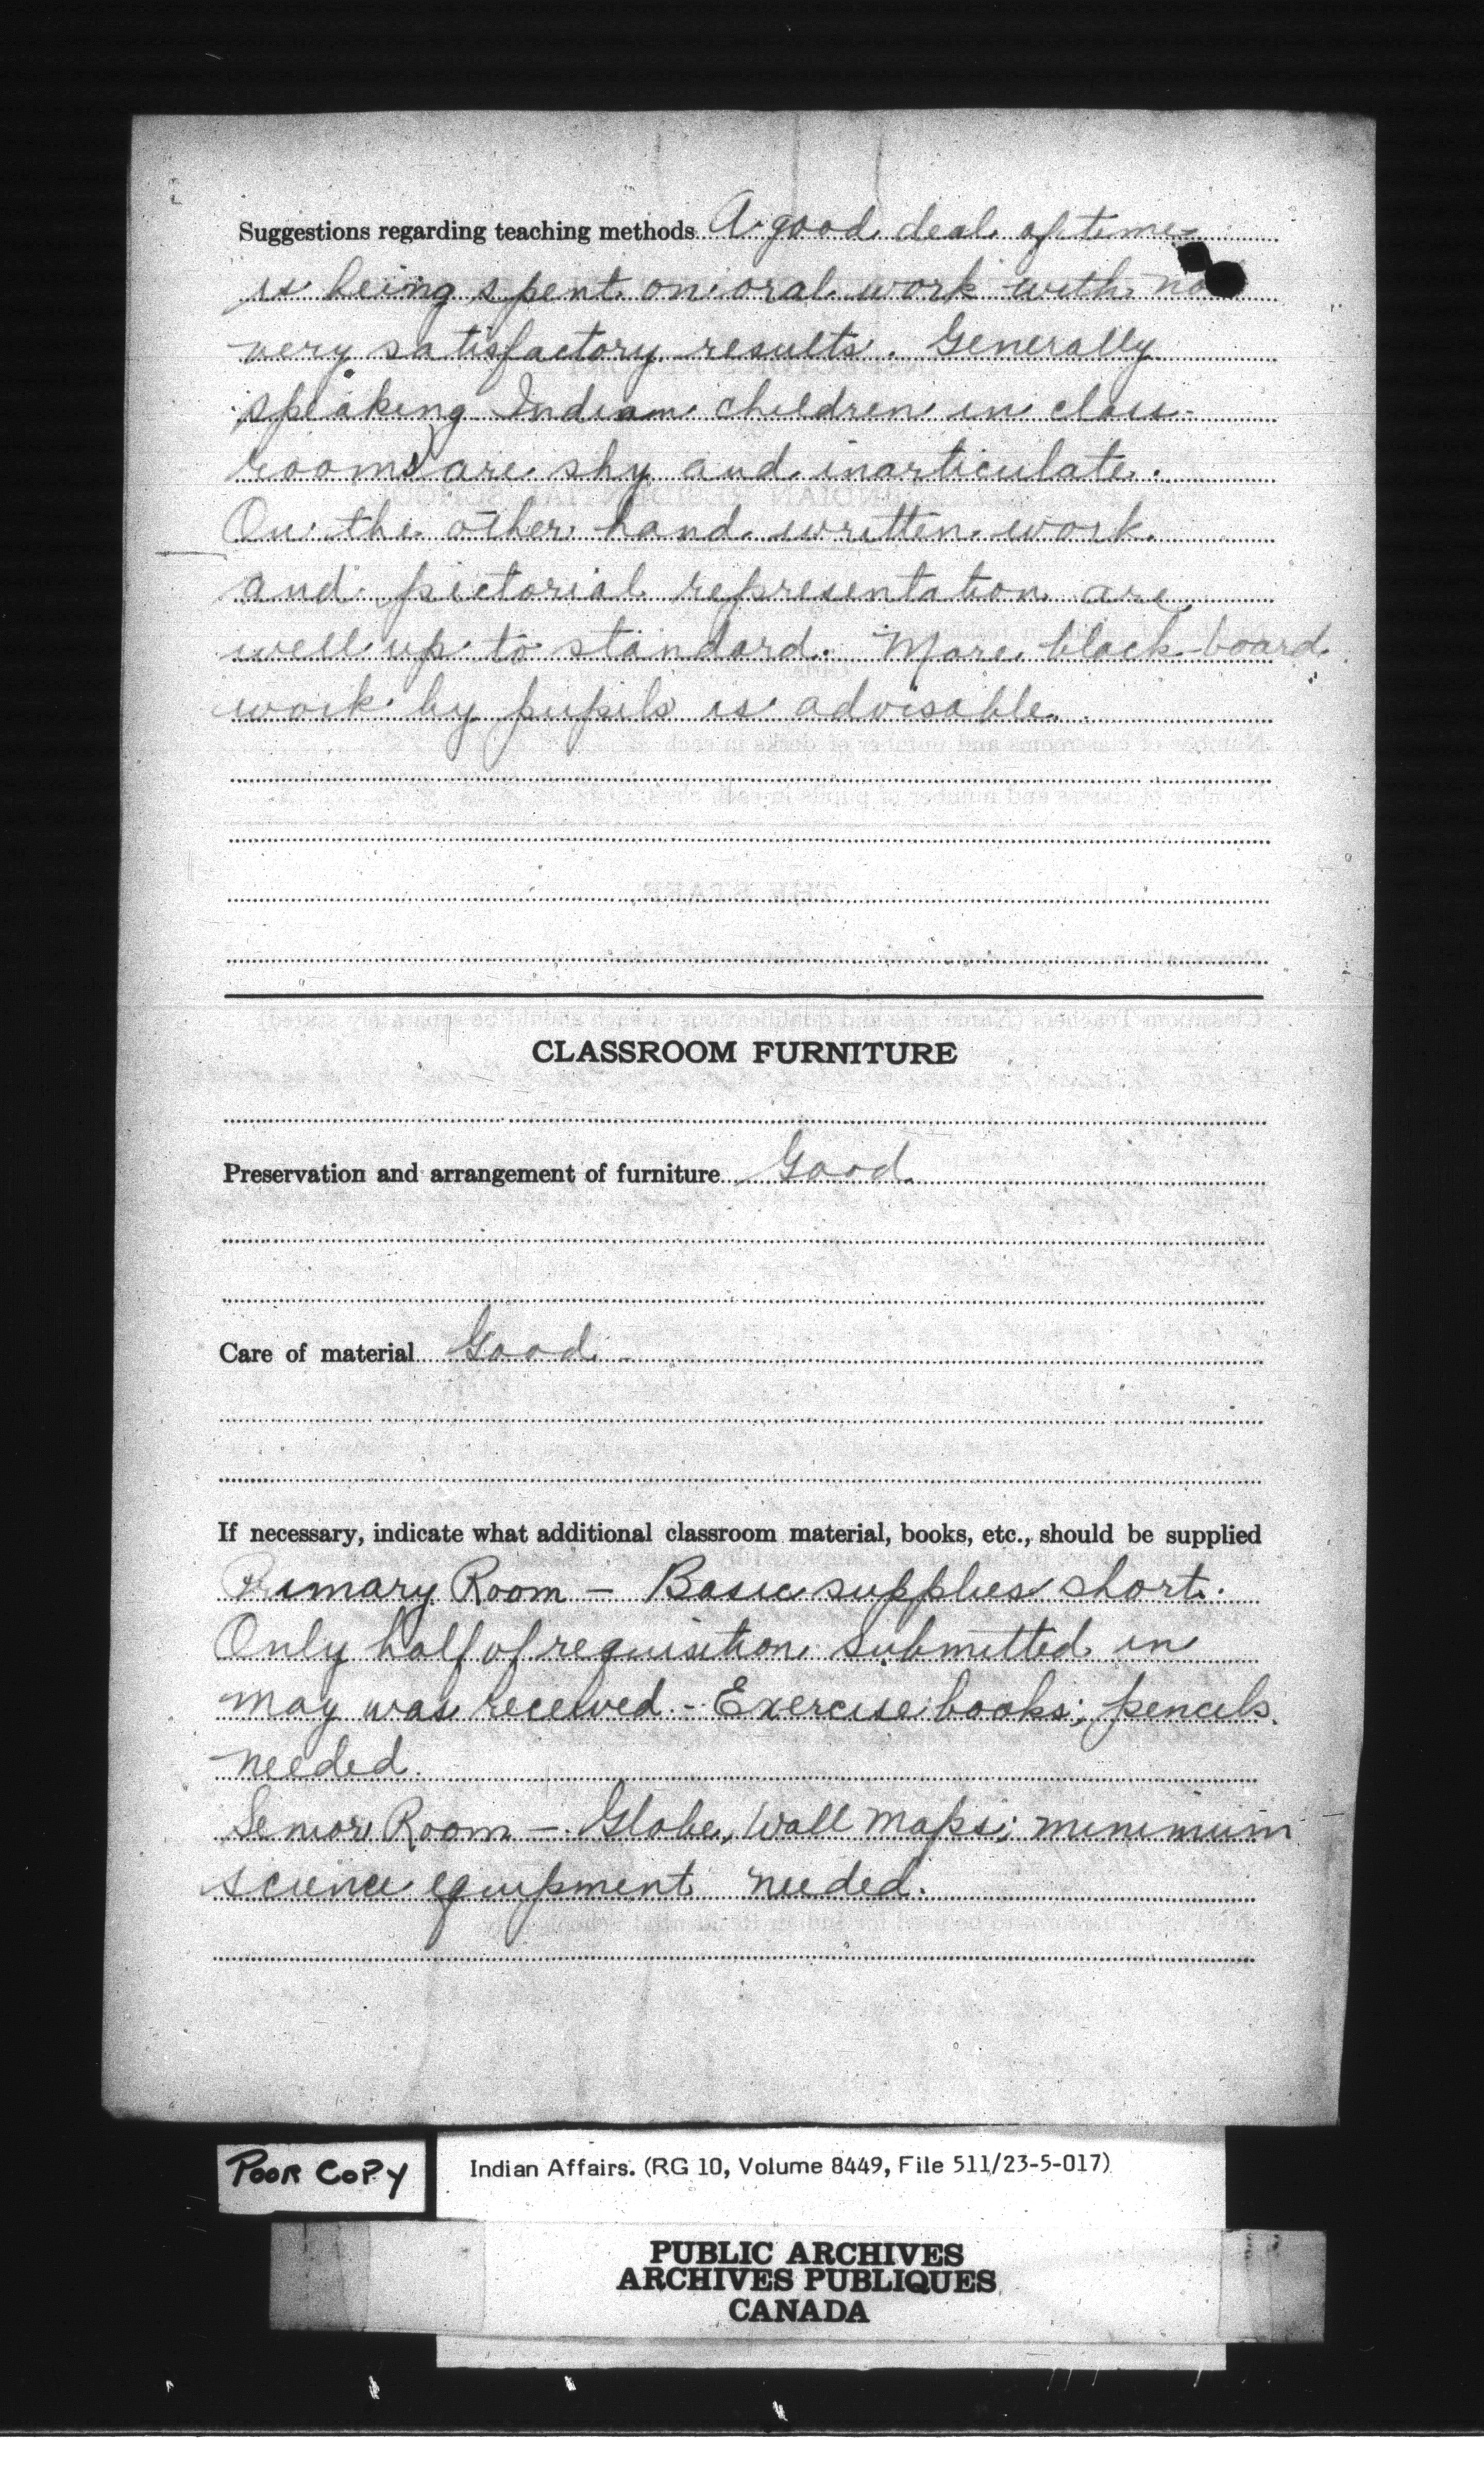 Suggestions regarding teaching methods A good deal of time
is being spent on oral work with no
very satisfactory results. Generally
speaking Indian children in class-
rooms are shy and inarticulate.
On the other hand written work
and pictorial representation are
well up to standard. More black-board
work by pupils is advisable.
CLASSROOM FURNITURE
Preservation and arrangement of furniture Good
Care of material Good
If necessary, indicate what additional classroom material, books, etc., should be supplied
Primary Room - Basic supplies short.
Only half of requisition submitted in
May was received. - Exercise books; pencils
needed.
Senior Room - Globe, Wall Maps; minimum
science equipment needed.
POOR COPY
Indian Affairs. (RG 10, Volume 8449, File 511/23-5-017)
PUBLIC ARCHIVES
ARCHIVES PUBLIQUES
CANADA